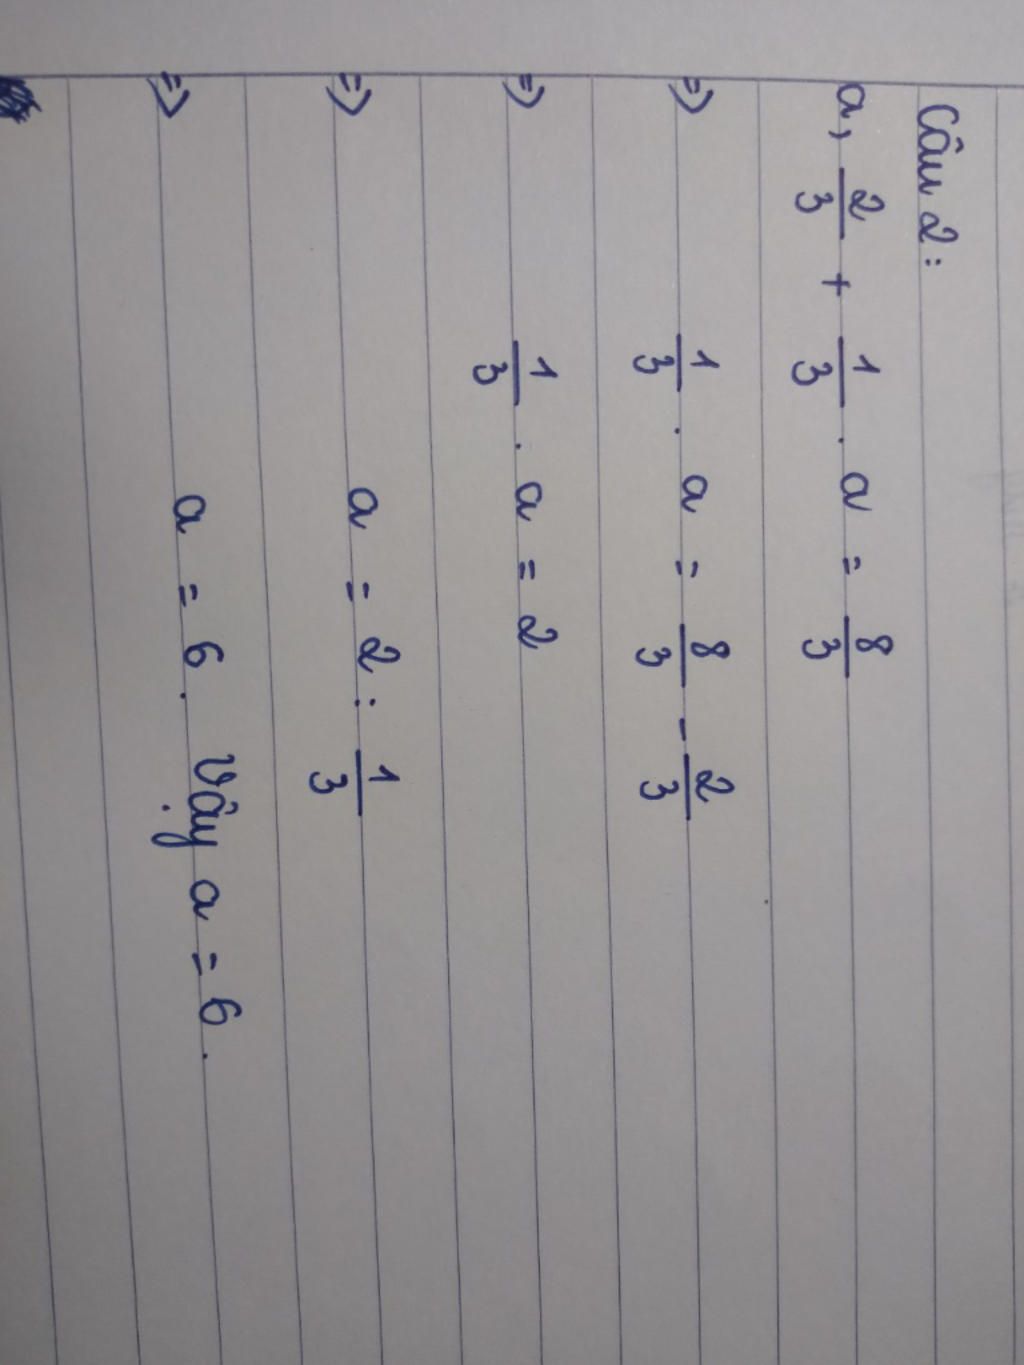 Câu 2:
a, 2/3 + 1/3 . a = 8/3
=> 1/3 . a = 8/3 - 2/3
=> 1/3 . a = 2
=> a = 2 : 1/3
=> a = 6 . Vậy a = 6 .